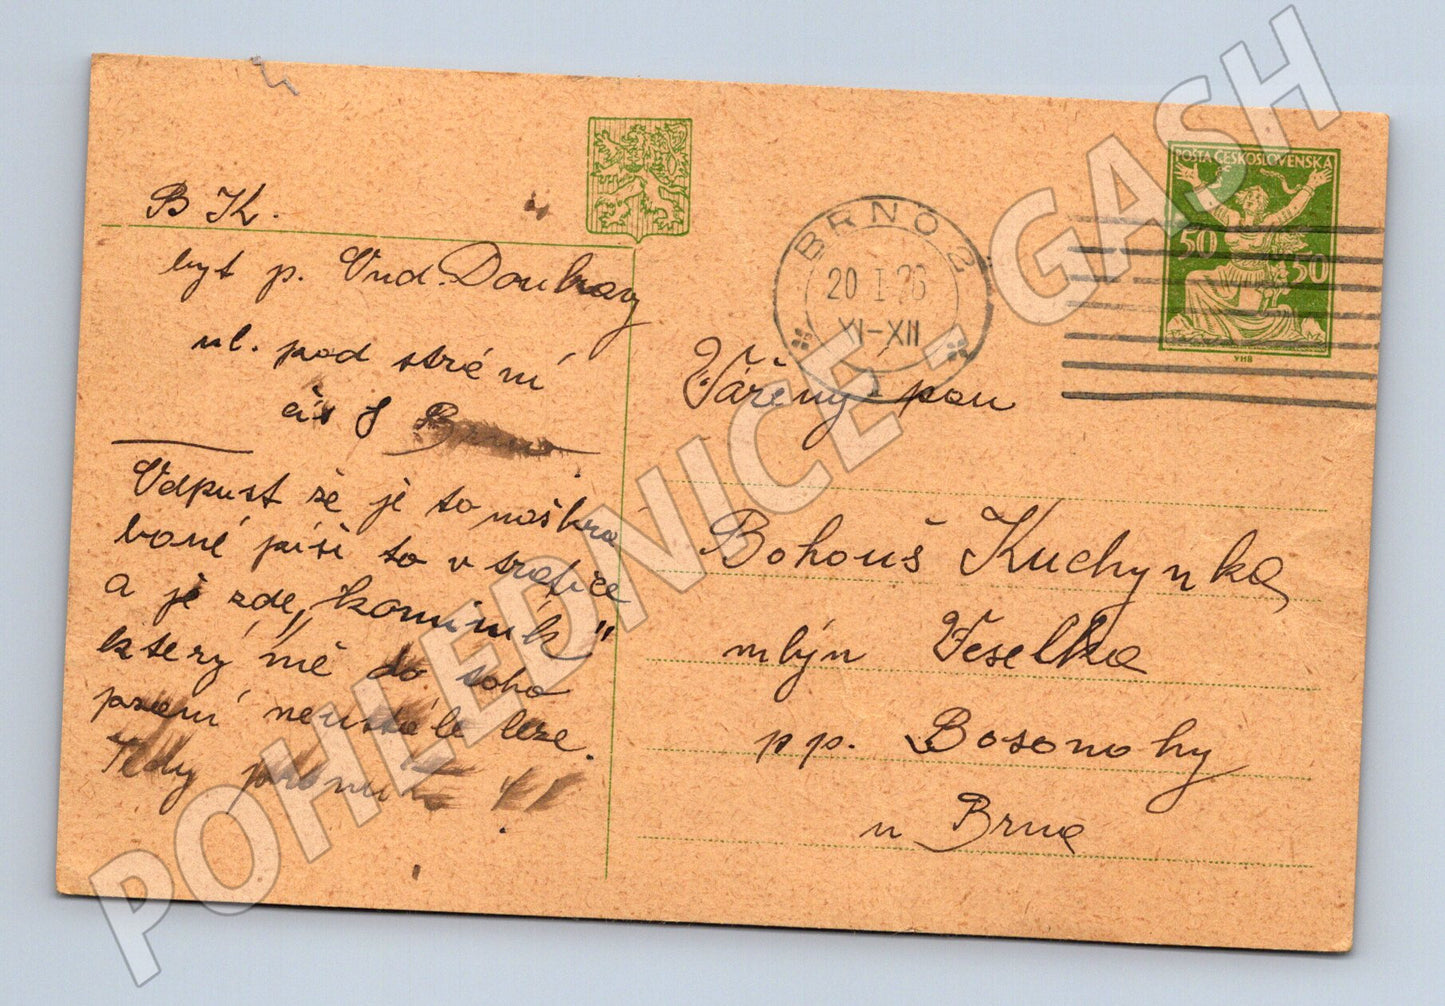 B K.
byt p. Vnd. Doubravy
ul. pod strání
čís 8 Brno
Odpust že je to naškra
bané píši to v trafice
a je zde „kominík"
který mě do toho
psaní neustále leze.
Tedy promiň
POŠTA ČESKOSLOVENSKÁ
50 50
BRNO 2
20 I 26
XI-XII
Vážený pan
Bohouš Kuchynka
mlýn Veselka
pp. Bosonohy
u Brna
POHLEDNICE - GASH